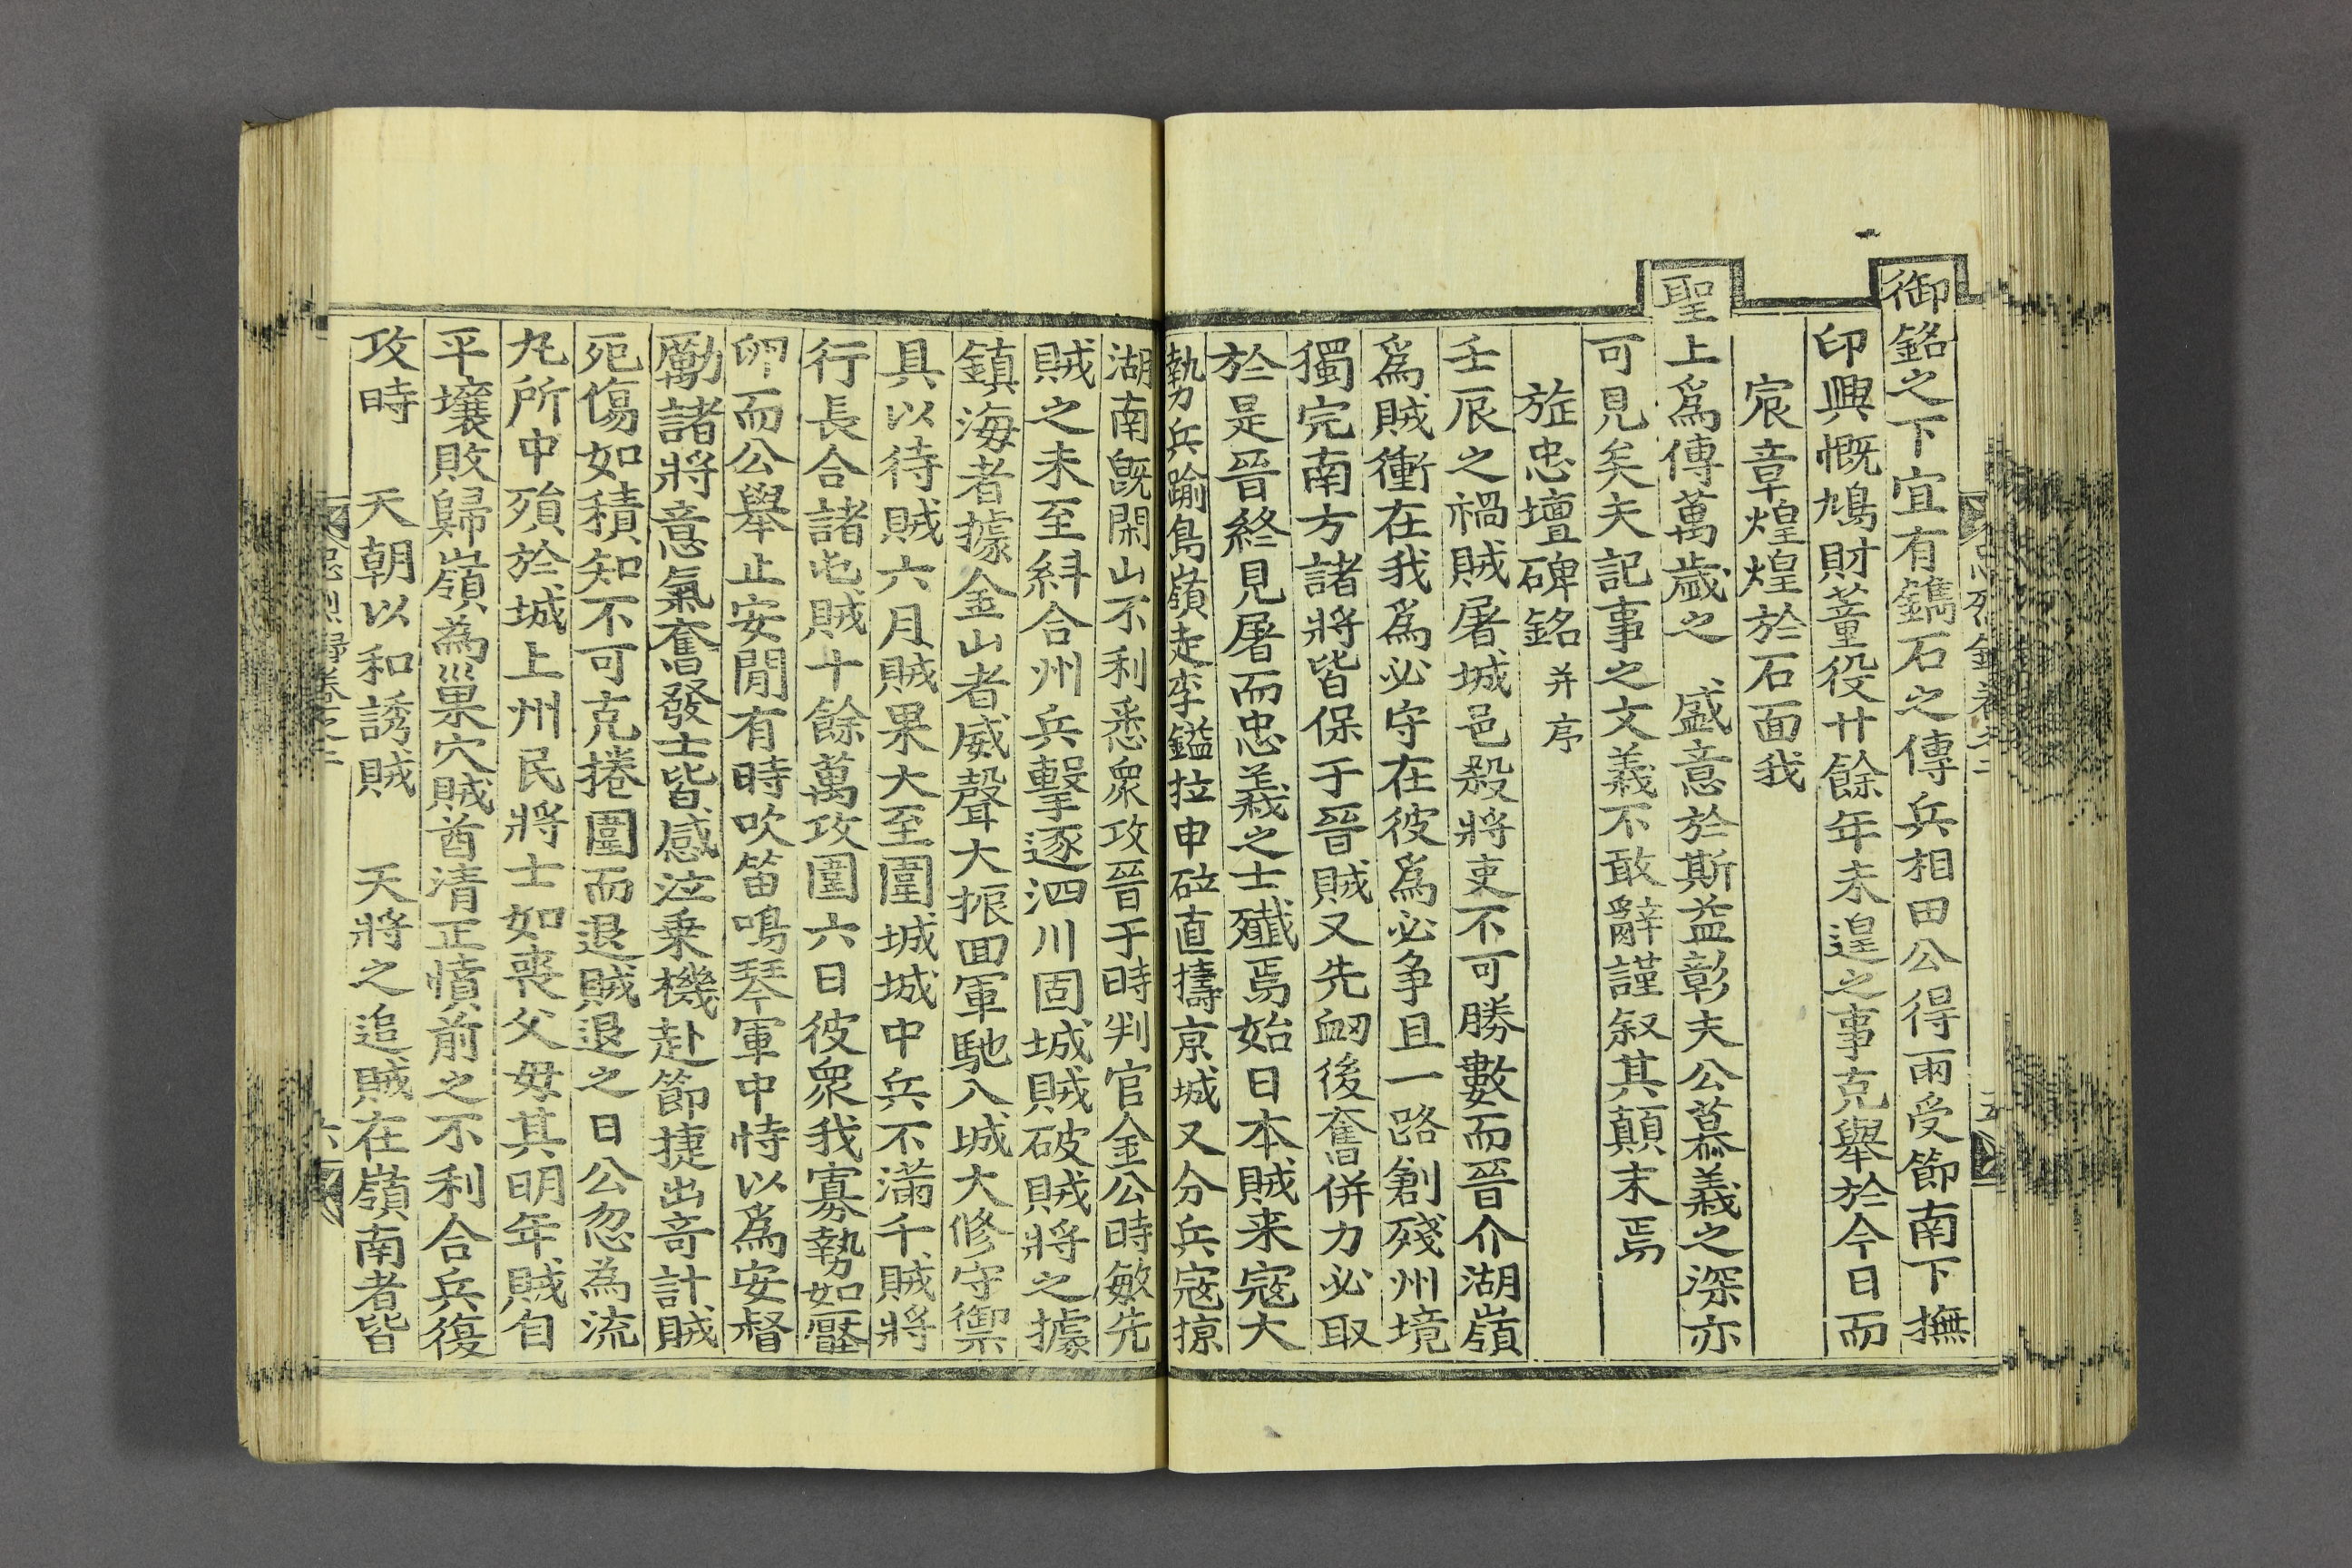 御銘之下宜有鐫石之傳兵相田公得兩受節南下撫
印興慨鳩財董役廿餘年未遑之事克舉於今日而
宸章煌煌於石面我
聖上爲傳萬歲之 盛意於斯益彰夫公慕義之深亦
可見矣夫記事之文義不敢辭謹叙其顛末焉
旌忠壇碑銘 并序
壬辰之禍賊屠城邑殺將吏不可勝數而晉介湖嶺
爲賊衝在我爲必守在彼爲必争且一路創殘州境
獨完南方諸將皆保于晉賊又先衂後奮併力必取
於是晉終見屠而忠義之士殲焉始日本賊来寇大
勢兵踰鳥嶺走李鎰拉申砬直擣京城又分兵寇掠
湖南旣閑山不利悉衆攻晉于時判官金公時敏先
賊之未至糾合州兵擊逐泗川固城賊破賊將之據
鎮海者據金山者威聲大振回軍馳入城大修守禦
具以待賊六月賊果大至圍城城中兵不滿千賊將
行長合諸屯賊十餘萬攻圍六日彼衆我寡勢如壓
卵而公舉止安閒有時吹笛鳴琴軍中恃以爲安督
勵諸將意氣奮發士皆感泣乗機赴節捷出竒計賊
死傷如積知不可克捲圍而退賊退之日公忽為流
丸所中殞於城上州民將士如喪父母其明年賊自
平壤敗歸嶺為巢穴賊酋清正憤前之不利合兵復
攻時 天朝以和誘賊 天將之追賊在嶺南者皆